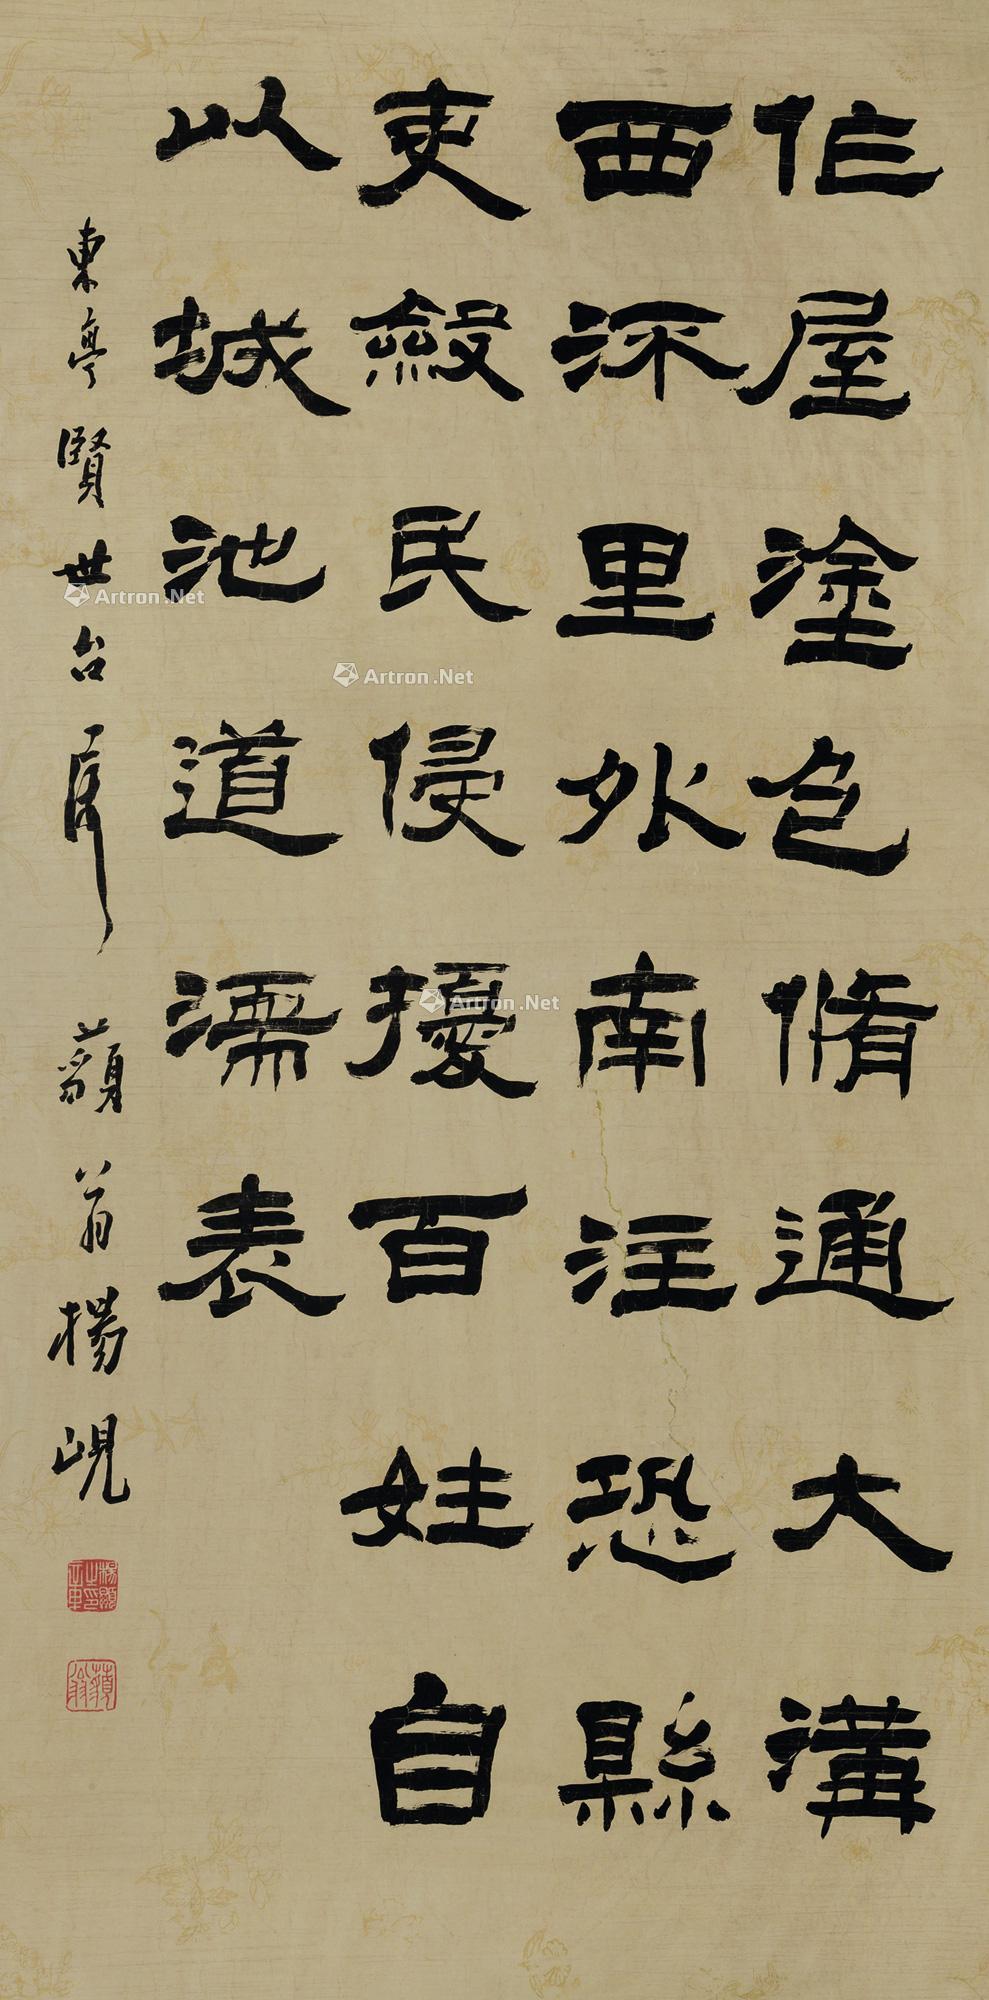 作屋塗色脩通大溝
西流里外南注恐縣
吏斂民侵擾百姓自
以城池道濡表
東亭賢世台屬 藐翁楊峴
藐翁
Artron.Net
Artron.Net
Artron.Net